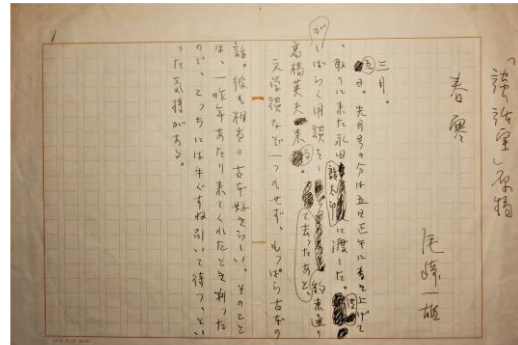 「談話室」原稿
春寒
尾崎一雄
三月。
五日。先月号の分は五日正午に書上げて
、取りに来た永田龍太郎に渡した。
がしばらく用談をして去ったあと、約束通り
高橋英夫来る。
文学談など一つもせず、もっぱら古本の
話。彼も相当の古本好きらしい。そのこと
は、一昨年あたり来てくれたとき判った
ので、こっちには手ぐすね引いて待つ、とい
った気持がある。